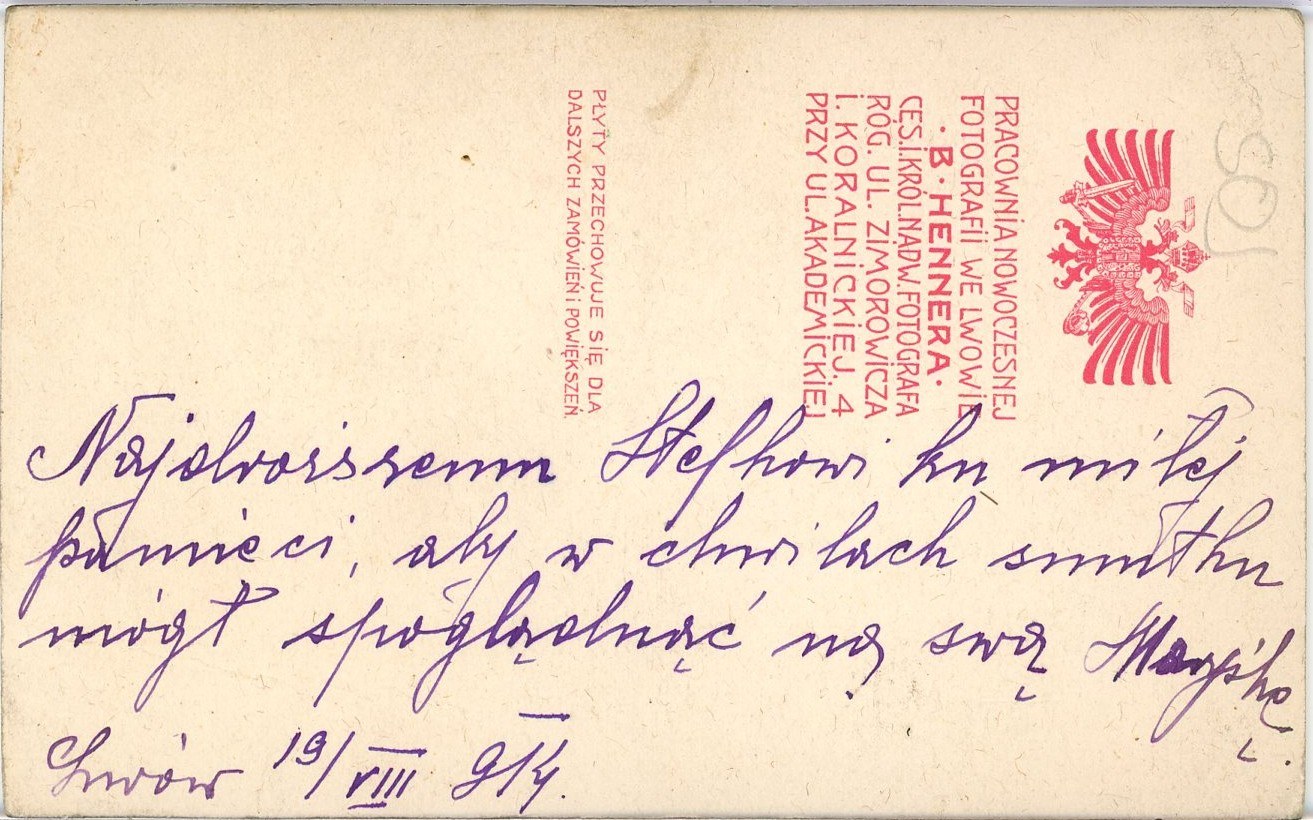 PRACOWNIA NOWOCZESNEJ
FOTOGRAFII WE LWOWIE
· B · HENNERA ·
CES. i KRÓL. NADW. FOTOGRAFA
RÓG. UL. ZIMOROWICZA
i. KORALNICKIEJ. 4
PRZY UL. AKADEMICKIEJ
PŁYTY PRZECHOWUJE SIĘ DLA
DALSZYCH ZAMÓWIEŃ i POWIĘKSZEŃ.
Najdroższemu Stefkowi ku miłej
pamięci, aby w chwilach smutku
mógł spoglądnąć na swą
Lwów 19/VIII 914.